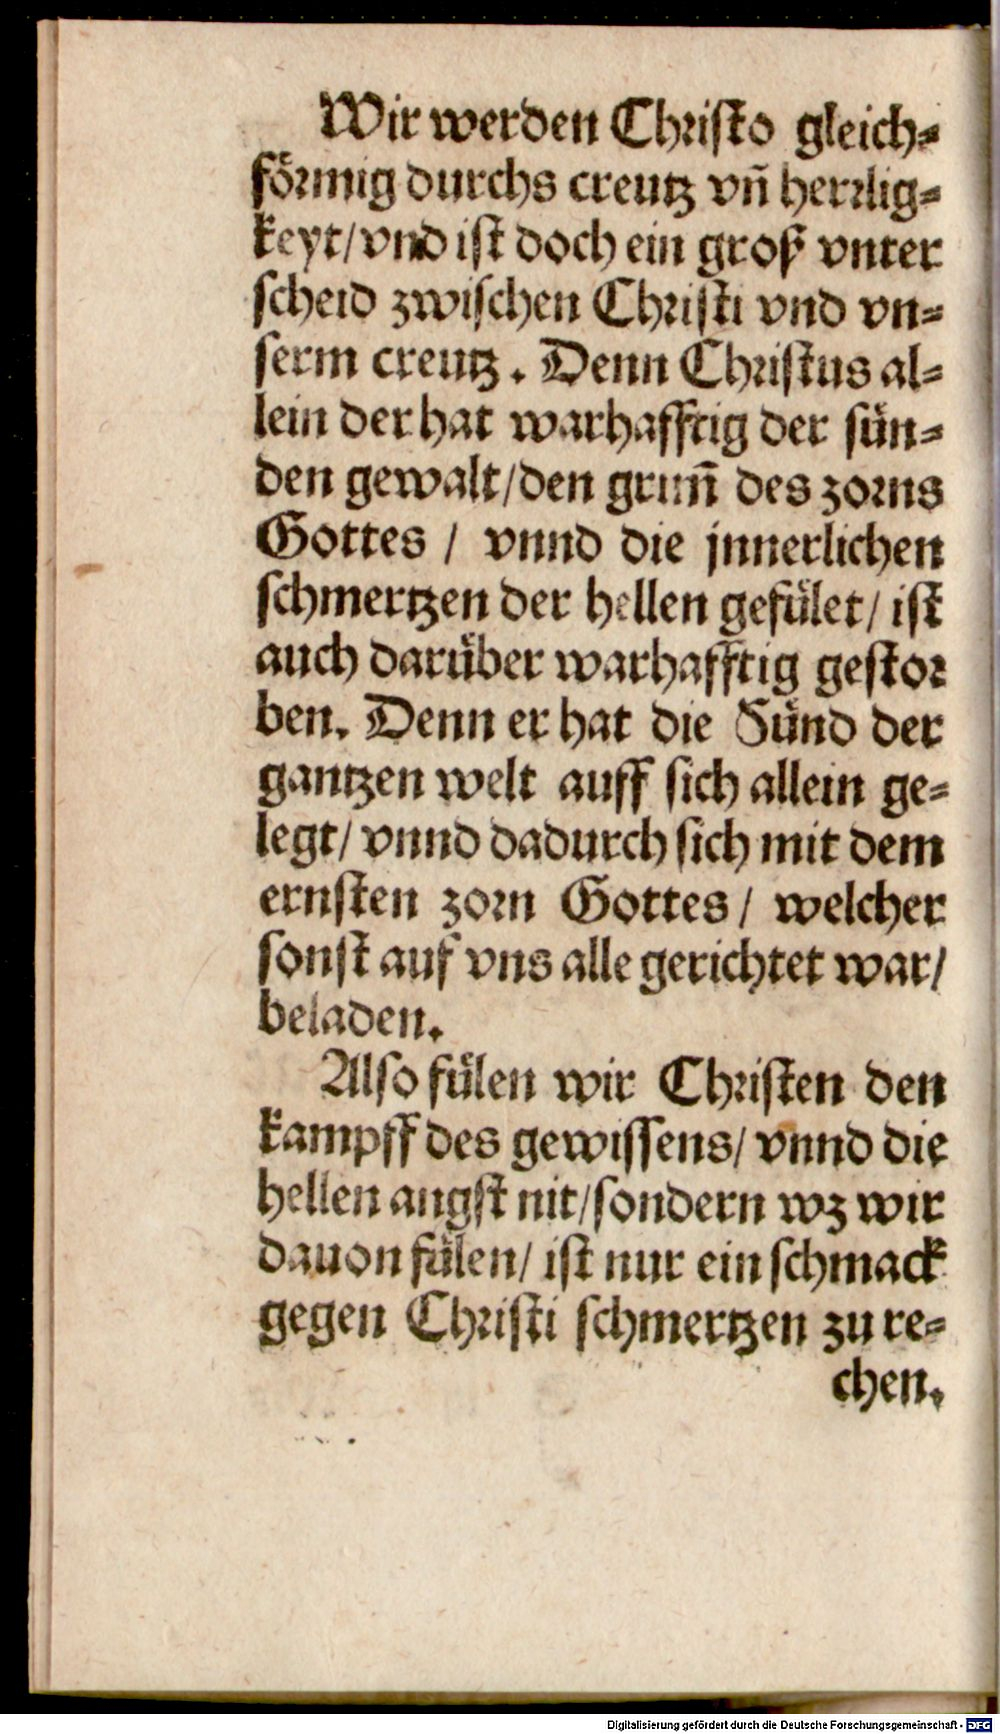 Wir werden Christo gleich⸗
förmig durchs creutz vñ herrlig⸗
keyt/vnd ist doch ein groß vnter
scheid zwischen Christi vnd vn⸗
serm creutz. Denn Christus al⸗
lein der hat warhafftig der sün⸗
den gewalt/den grim̄ des zorns
Gottes / vnnd die jnnerlichen
schmertzen der hellen gefület/ ist
auch darüber warhafftig gestor
ben. Denn er hat die Sünd der
gantzen welt auff sich allein ge⸗
legt/ vnnd dadurch sich mit dem
ernsten zorn Gottes/ welcher
sonst auf vns alle gerichtet war/
beladen.
Also fülen wir Christen den
kampff des gewissens/ vnnd die
hellen angst nit/sondern wz wir
dauon fülen/ ist nur ein schmack
gegen Christi schmertzen zu re⸗
chen.
Digitalisierung gefördert durch die Deutsche Forschungsgemeinschaft - DFG